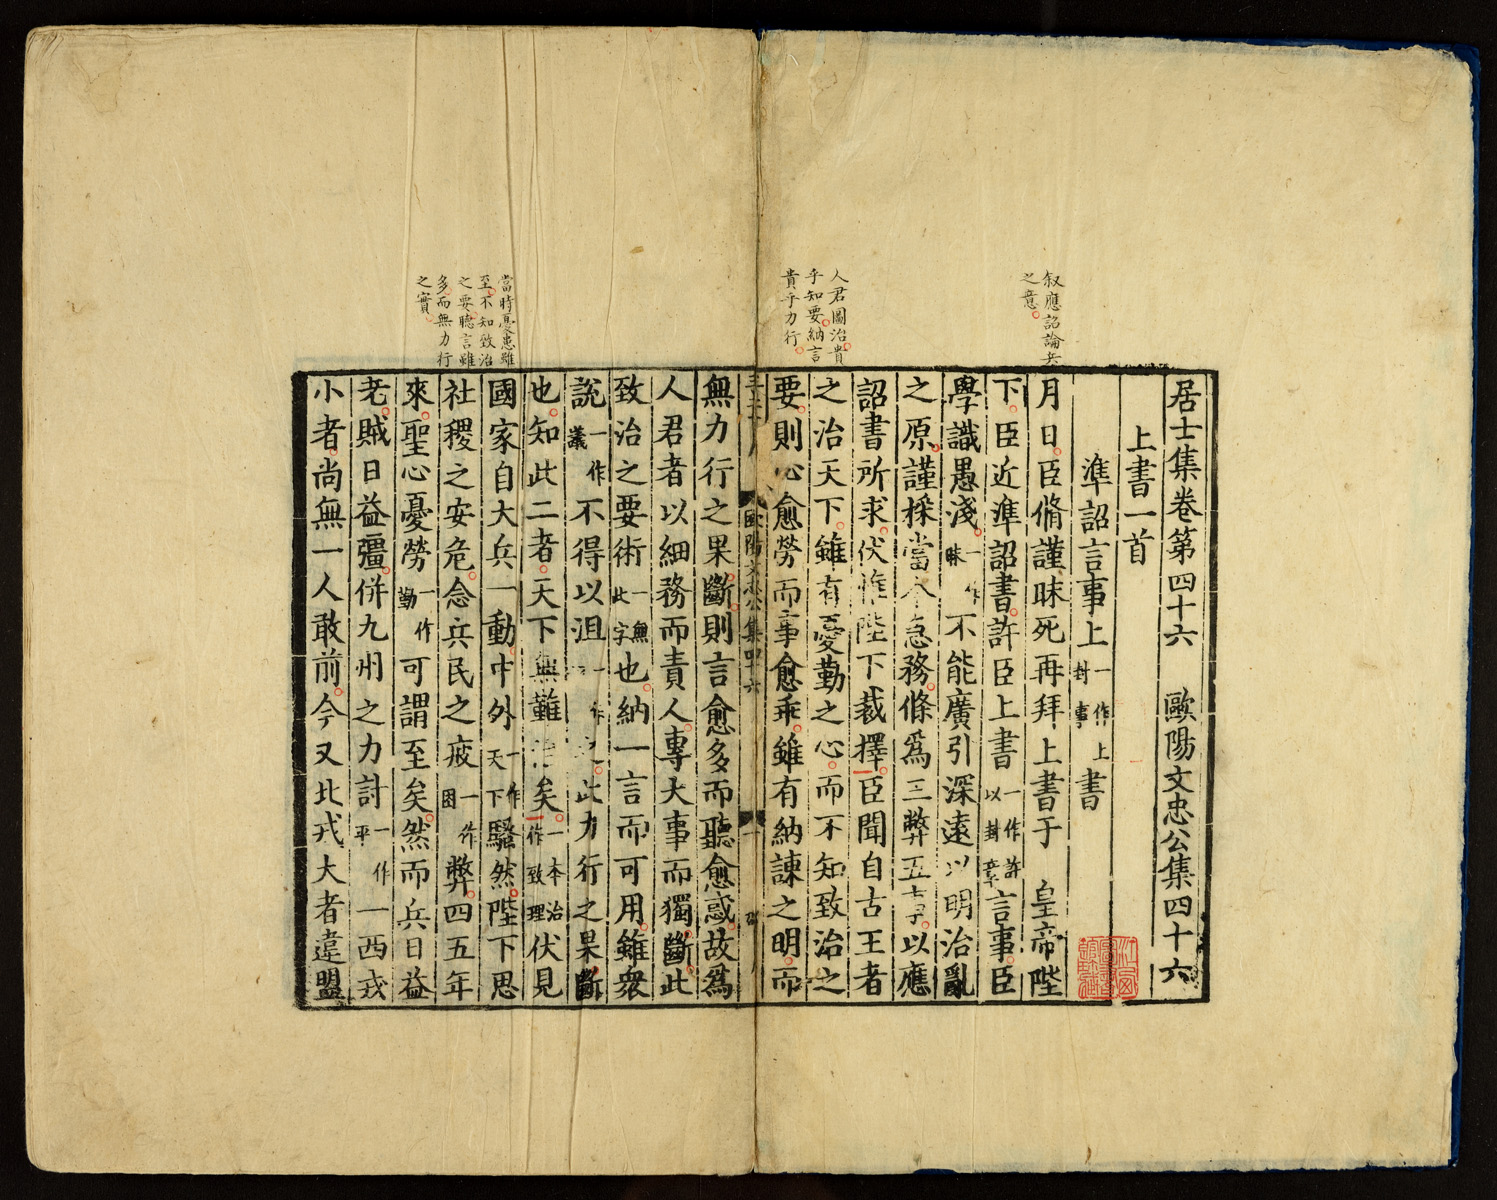 居士集卷第四十六　歐陽文忠公集四十六
上書一首
準詔言事上一作上封事書
月日臣脩謹昧死再拜上書于　皇帝陛
下臣近準詔書許臣上書一作許以封章言事臣
學識愚淺一作昧不能廣引深遠以明治亂
之原謹採當今急務條爲三弊五事以應
詔書所求伏惟陛下裁擇臣聞自古王者
之治天下雖有憂勤之心而不知致治之
要則心愈勞而事愈乖雖有納諫之明而
歐陽文忠公集四十六
一
無力行之果斷則言愈多而聽愈惑故爲
人君者以細務而責人專大事而獨斷此
致治之要術一無此字也納一言而可用雖衆
說一作議不得以沮一作之此力行之果斷
也知此二者天下無難治矣一本作治致理伏見
國家自大兵一動中外一作天下騷然陛下思
社稷之安危念兵民之疲一作困弊四五年
來聖心憂勞一作勤可謂至矣然而兵日益
老賊日益彊併九州之力計一作平一西戎
小者尚無一人敢前今又北戎大者違盟
叙應詔論兵
之意
人君圖治貴
乎知要納言
貴乎力行
當時憂患雖
至不知致治
之要聽言雖
多而無力行
之實